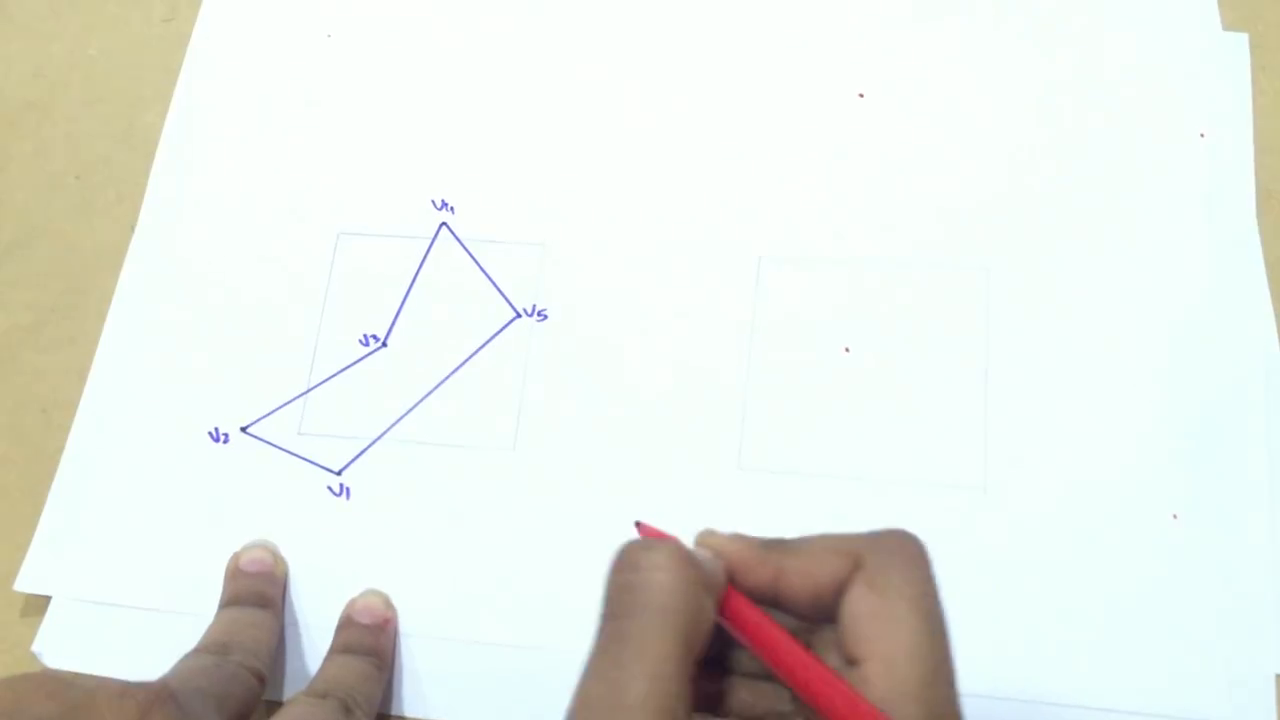 V4
V5
V3
V2
V1